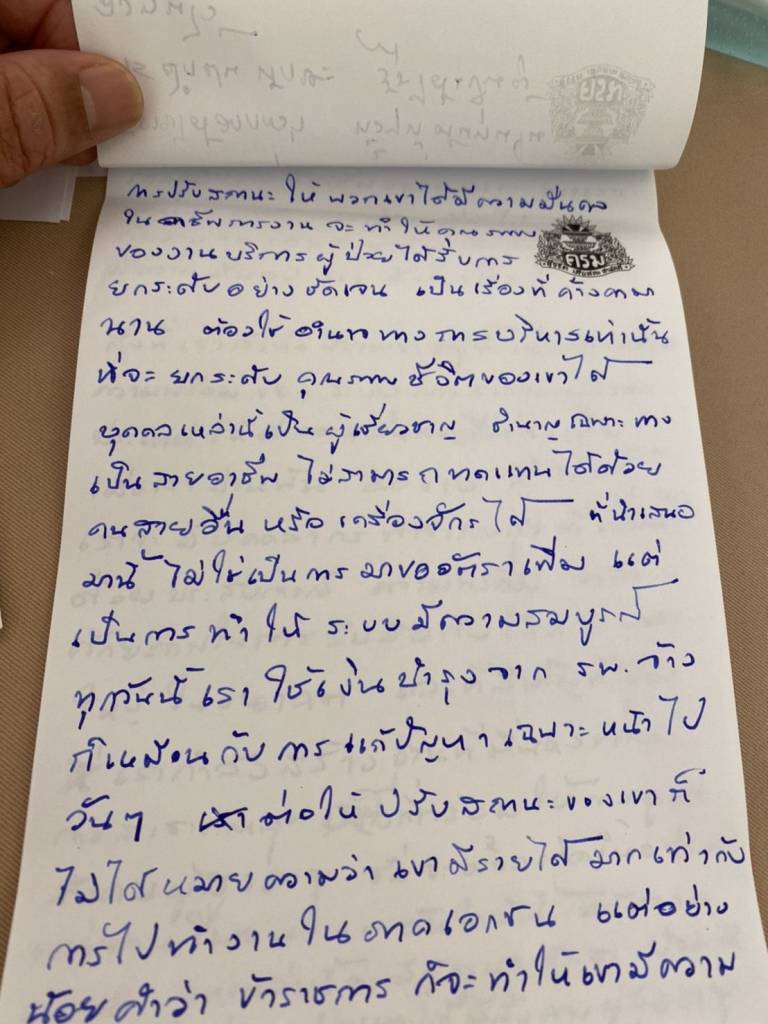 การปรับสถานะ ให้ พวกเขาได้มีความมั่นคง
ในอาชีพการงาน จะทำให้คุณภาพ
ของงานบริการผู้ป่วยได้รับการ
ครม
ยกระดับอย่างชัดเจน เป็นเรื่องที่ ค้างคามา
นาน ต้องใช้ อำนาจทางการบริหารเท่านั้น
ที่จะ ยกระดับ คุณภาพชีวิตของเขาได้
บุคคลเหล่านี้เป็น ผู้เชี่ยวชาญ ชำนาญเฉพาะทาง
เป็นสายอาชีพ ไม่สามารถทดแทนได้ด้วย
คนสายอื่น หรือ เครื่องจักรได้ ที่นำเสนอ
มานี้ ไม่ใช่เป็นการมาขออัตราเพิ่ม แต่
เป็นการทำให้ ระบบมีความสมบูรณ์
ทุกวันนี้เราใช้เงินบำรุงจาก รพ. จ้าง
ก็เหมือนกับการแก้ปัญหาเฉพาะหน้าไป
วันๆ ต่อให้ ปรับสถานะของเขาก็
ไม่ได้หมายความว่า เขามีรายได้มากเท่ากับ
การไปทำงานในภาคเอกชน แต่อย่าง
น้อยคำว่า ข้าราชการ ก็จะทำให้เขามีความ